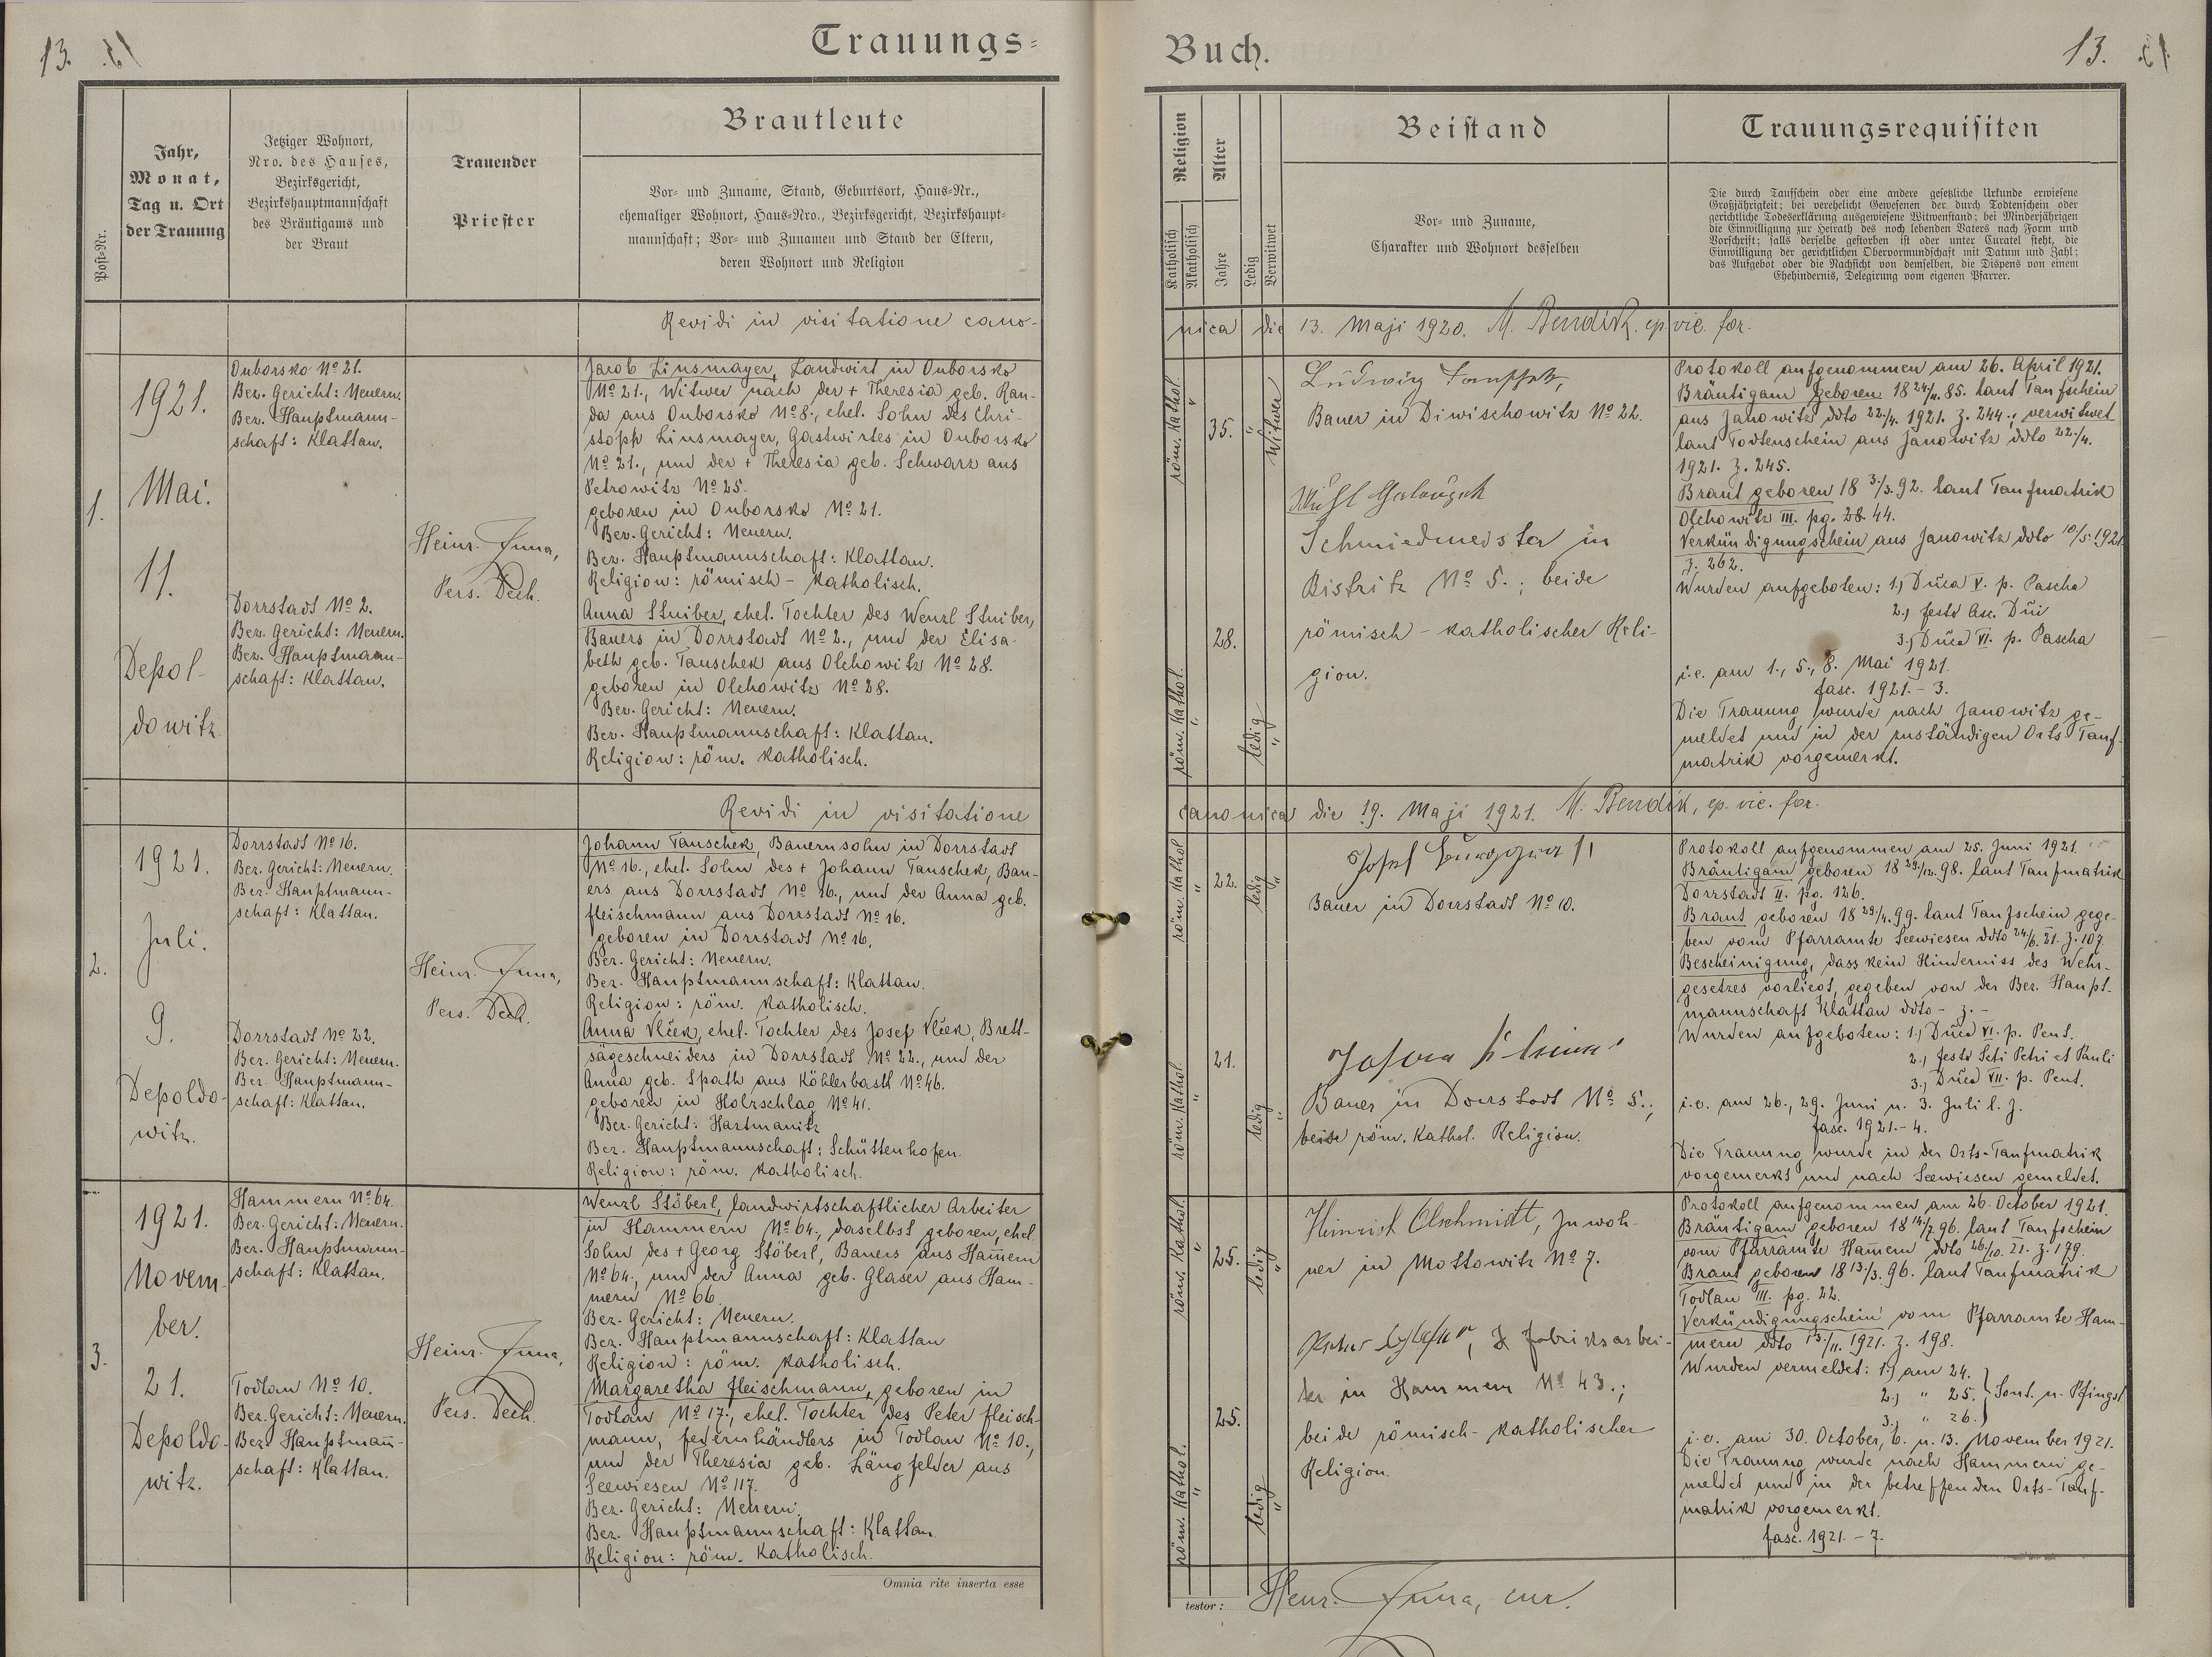 13.
Trauungs-
Post-Nr.
Jahr,
Monat,
Tag u. Ort
der Trauung
Jetziger Wohnort,
Nro. des Hauses,
Bezirksgericht,
Bezirkshauptmannschaft
des Bräutigams und
der Braut
Trauender
Priester
Brautleute
Vor- und Zuname, Stand, Geburtsort, Haus-Nr.,
ehemaliger Wohnort, Haus-Nro., Bezirksgericht, Bezirkshaupt-
mannschaft; Vor- und Zunamen und Stand der Eltern,
deren Wohnort und Religion
Revidi in visitatione cano-
1.
1921.
Mai.
11.
Depol-
dowitz
Ouborsko No 21.
Bez. Gericht: Neuern.
Bez. Hauptmann-
schaft: Klattau.
Dorrstadt No 2.
Bez. Gericht: Neuern.
Bez. Hauptmann-
schaft: Klattau.
Heinr.
Pers. Dech.
Jacob Linsmayer, Landwirt in Ouborsko
No 21., Witwer nach der + Theresia geb. Ran-
da aus Ouborsko No 8., ehel. Sohn des Chri-
stoph Linsmayer, Gastwirtes in Ouborsko
No 21., und der + Theresia geb. Schwarz aus
Petrowitz No 25.
geboren in Ouborsko No 21.
Bez. Gericht: Neuern.
Bez. Hauptmannschaft: Klattau.
Religion: römisch-katholisch.
Anna Stuiber, ehel. Tochter des Wenzl Stuiber,
Bauers in Dorrstadt No 2., und der Elisa-
beth geb. Tauschek aus Olchowitz No 28.
geboren in Olchowitz No 28.
Bez. Gericht: Neuern.
Bez. Hauptmannschaft: Klattau.
Religion: röm. katholisch.
Revidi in visitatione
2.
1921.
Juli.
9.
Depoldo-
witz.
Dorrstadt No 16.
Bez. Gericht: Neuern.
Bez. Hauptmann-
schaft: Klattau.
Dorrstadt No 22.
Bez. Gericht: Neuern.
Bez. Hauptmann-
schaft: Klattau.
Heinr.
Pers. Dech.
Johann Tauschek, Bauernsohn in Dorrstadt
No 16., ehel. Sohn des + Johann Tauschek, Bau-
ers aus Dorrstadt No 16., und der Anna geb.
Fleischmann aus Dorrstadt No 16.
geboren in Dorrstadt No 16.
Bez. Gericht: Neuern.
Bez. Hauptmannschaft: Klattau.
Religion: röm. katholisch.
Anna Vlček, ehel. Tochter des Josef Vlček, Brett-
sägeschneiders in Dorrstadt No 22., und der
Anna geb. Spath aus No 46.
geboren in Holzschlag No 41.
Bez. Gericht: Hartmanitz
Bez. Hauptmannschaft: Schüttenhofen.
Religion: röm. katholisch.
3.
1921.
Novem-
ber.
21.
Depoldo-
witz.
Hammern No 64.
Bez. Gericht: Neuern.
Bez. Hauptmann-
schaft: Klattau.
Todlau No 10.
Bez. Gericht: Neuern.
Bez. Hauptmañ-
schaft: Klattau.
Heinr.
Pers. Dech.
Wenzl Stöberl, landwirtschaftlicher Arbeiter
in Hammern No 64., daselbst geboren, ehel.
Sohn des + Georg Stöberl, Bauers aus Ham̄ern
No 64., und der Anna geb. Glaser aus Ham-
mern No 66.
Bez. Gericht: Neuern.
Bez. Hauptmannschaft: Klattau
Religion: röm. katholisch.
Margaretha Fleischmann, geboren in
Todlau No 17., ehel. Tochter des Peter Fleisch-
mann, Federnhändlers in Todlau No 10.,
und der Theresia geb. Längfelder aus
Seewiesen No 117.
Bez. Gericht: Neuern.
Bez. Hauptmannschaft: Klattau.
Religion: röm. katholisch.
Omnia rite inserta esse
Buch.
13.
Religion
Katholisch
Akatholisch
Alter
Jahre
Ledig
Verwitwet
Beistand
Vor- und Zuname,
Charakter und Wohnort desselben
Trauungsrequisiten
Die durch Taufschein oder eine andere gesetzliche Urkunde erwiesene
Großjährigkeit; bei verehelicht Gewesenen der durch Todtenschein oder
gerichtliche Todeserklärung ausgewiesene Witwenstand; bei Minderjährigen
die Einwilligung zur Heirath des noch lebenden Vaters nach Form und
Vorschrift; falls derselbe gestorben ist oder unter Curatel steht, die
Einwilligung der gerichtlichen Obervormundschaft mit Datum und Zahl;
das Aufgebot oder die Nachsicht von demselben, die Dispens von einem
Ehehindernis, Delegirung vom eigenen Pfarrer.
nica die 13. Maji 1920. M. Bendik, ep. vic. for.
röm. kathol.
35.
Witwer
röm. kathol.
28.
ledig
Ludwig
Bauer in Diwischowitz No 22.
Schmiedmeister in
Bistritz No 5.; beide
römisch-katholischer Reli-
gion.
Protokoll aufgenommen am 26. April 1921.
Bräutigam geboren 18 24/11. 85. laut Taufschein
aus Janowitz ddto 22./4. 1921. Z. 244.; verwitwet
laut Todtenschein aus Janowitz ddto 22./4.
1921. Z. 245.
Braut geboren 18 3./3. 92. laut Taufmatrik
Olchowitz III. pg. 28. 44.
Verkündigungschein aus Janowitz ddto 10/5. 1921
Z. 262.
Wurden aufgeboten: 1.) Dñca V. p. Pascha
2.) festo Asc. Dñi
3.) Dñca VI. p. Pascha
i.e. am 1., 5., 8. Mai 1921.
fasc. 1921. - 3.
Die Trauung wurde nach Janowitz ge-
meldet und in der zuständigen Orts Tauf-
matrik vorgemerkt.
canonica die 19. Maji 1921. M. Bendik, ep. vic. for.
röm. kathol
22.
ledig
röm. kathol.
21.
ledig
Josef
Bauer in Dorrstadt No 10.
Bauer in Dorrstadt No 5.;
beide röm. kathol. Religion.
Protokoll aufgenommen am 25. Juni 1921.
Bräutigam geboren 18 29/12. 98. laut Taufmatrik
Dorrstadt II. pg. 126.
Braut geboren 18 29./4. 99. laut Taufschein gege-
ben vom Pfarramte Seewiesen ddto 24/6. 21. Z. 107.
Bescheinigung, dass kein Hinderniss des Wehr-
gesetzes vorliegt, gegeben von der Bez. Haupt-
mannschaft Klattau ddto - Z. -
Wurden aufgeboten: 1.) Dñca VI. p. Pent.
2.) festo Scti Petri et Pauli
3.) Dñca VII. p. Pent.
i.e. am 26., 29. Juni u. 3. Juli l. J.
fasc. 1921. - 4.
Die Trauung wurde in der Orts-Taufmatrik
vorgemerkt und nach Seewiesen gemeldet.
röm. kathol.
25.
ledig
röm. kathol.
25.
ledig
Heinrich Olschmidt, Inwoh-
ner in Mottowitz No 7.
Fabriksarbei-
ter in Hammern No 43.;
beide römisch-katholischer
Religion.
Protokoll aufgenommen am 26. October 1921.
Bräutigam geboren 18 14/7. 96. laut Taufschein
vom Pfarramte Ham̄ern ddto 26/10. 21. Z. 179.
Braut geboren 18 13./3. 96. laut Taufmatrik
Todlau III. pg. 22.
Verkündigungschein vom Pfarramte Ham-
mern ddto 13./11. 1921. Z. 198.
Wurden vermeldet: 1.) am 24.
2.) " 25. } Sont. n. Pfingst.
3.) " 26.
i.e. am 30. October, 6. u. 13. November 1921.
Die Trauung wurde nach Hammern ge-
meldet und in der betreffenden Orts-Tauf-
matrik vorgemerkt.
fasc. 1921. - 7.
testor: Heinr. cur.